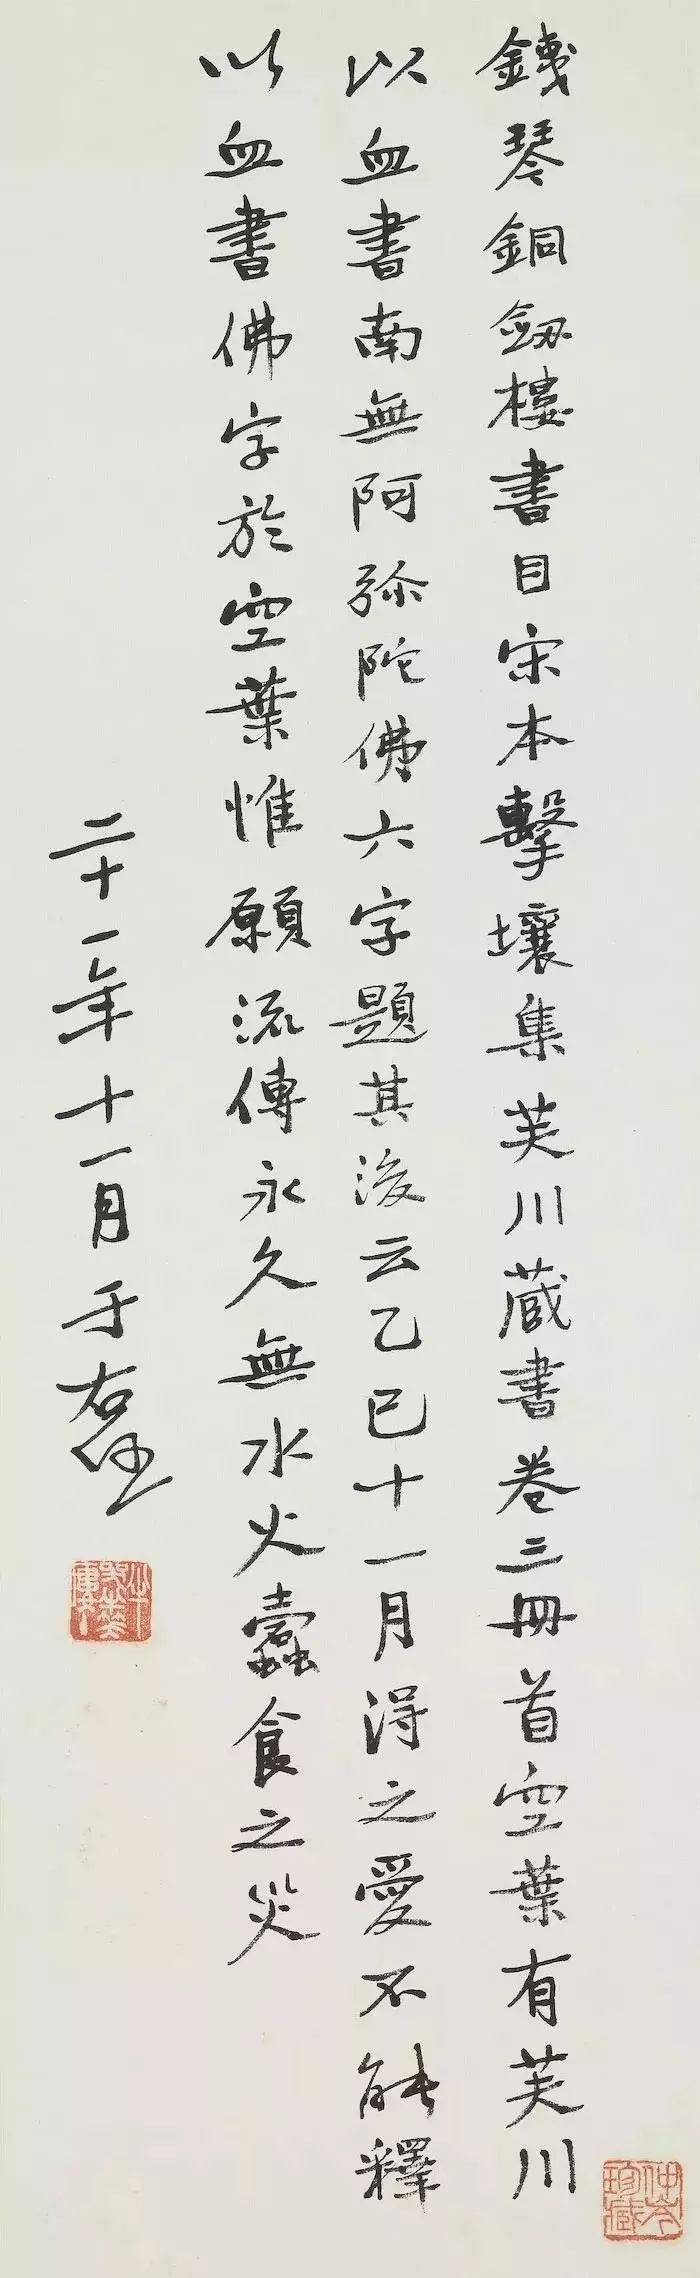 鐵琴銅劒樓書目宋本擊壤集芙川藏書卷三冊首空葉有芙川
以血書南無阿弥陀佛六字題其後云乙巳十一月得之愛不能釋
以血書佛字於空葉惟願流傳永久無水火蠹食之災
二十一年十一月于右任
仲岑珍藏